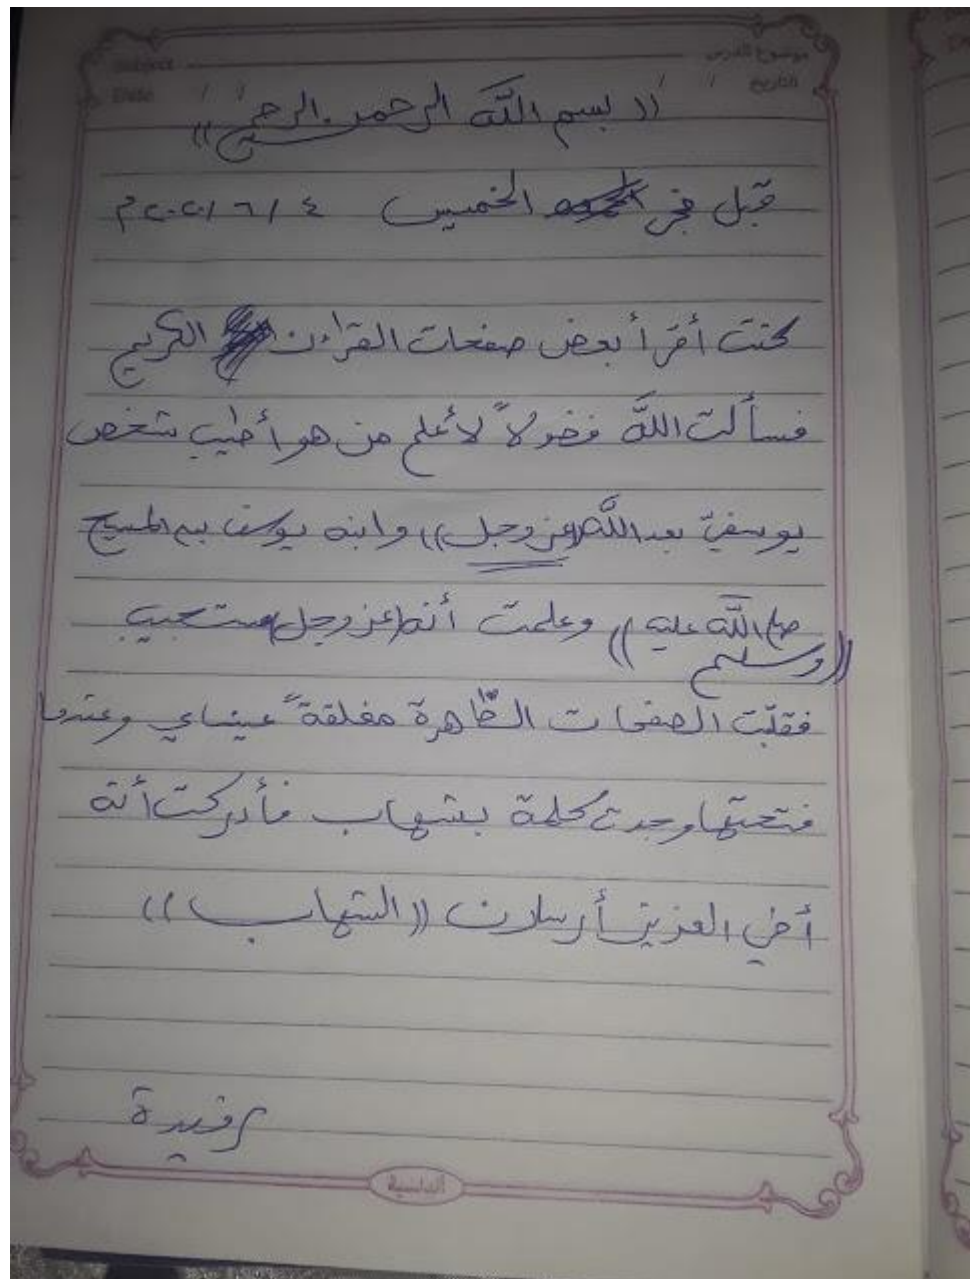 موضوع الدرس
التاريخ / /
(( بسم الله الرحمن الرحيم ))
قبل فجر الخميس ٤ / ٦ / ٢٠٢٠ م
كنت أقرأ بعض صفحات القرآن الكريم
فسألت اللَّه فضولاً لأعلم من هو أطيب شخص
يوسفيّ بعد اللَّه ((عز وجل)) وابنه يوسف بن المسيح
((صلى اللَّه عليه وسلم)) وعلمت أنه (عز وجل) سيستجيب
فقلبّت الصفحات الظّاهرة مغلقةً عيناي وعندما
فتحتها وجدتُ كلمة بشهاب فأدركت أنه
أخي العزيز أرسلان ((الشهاب))
رفيدة